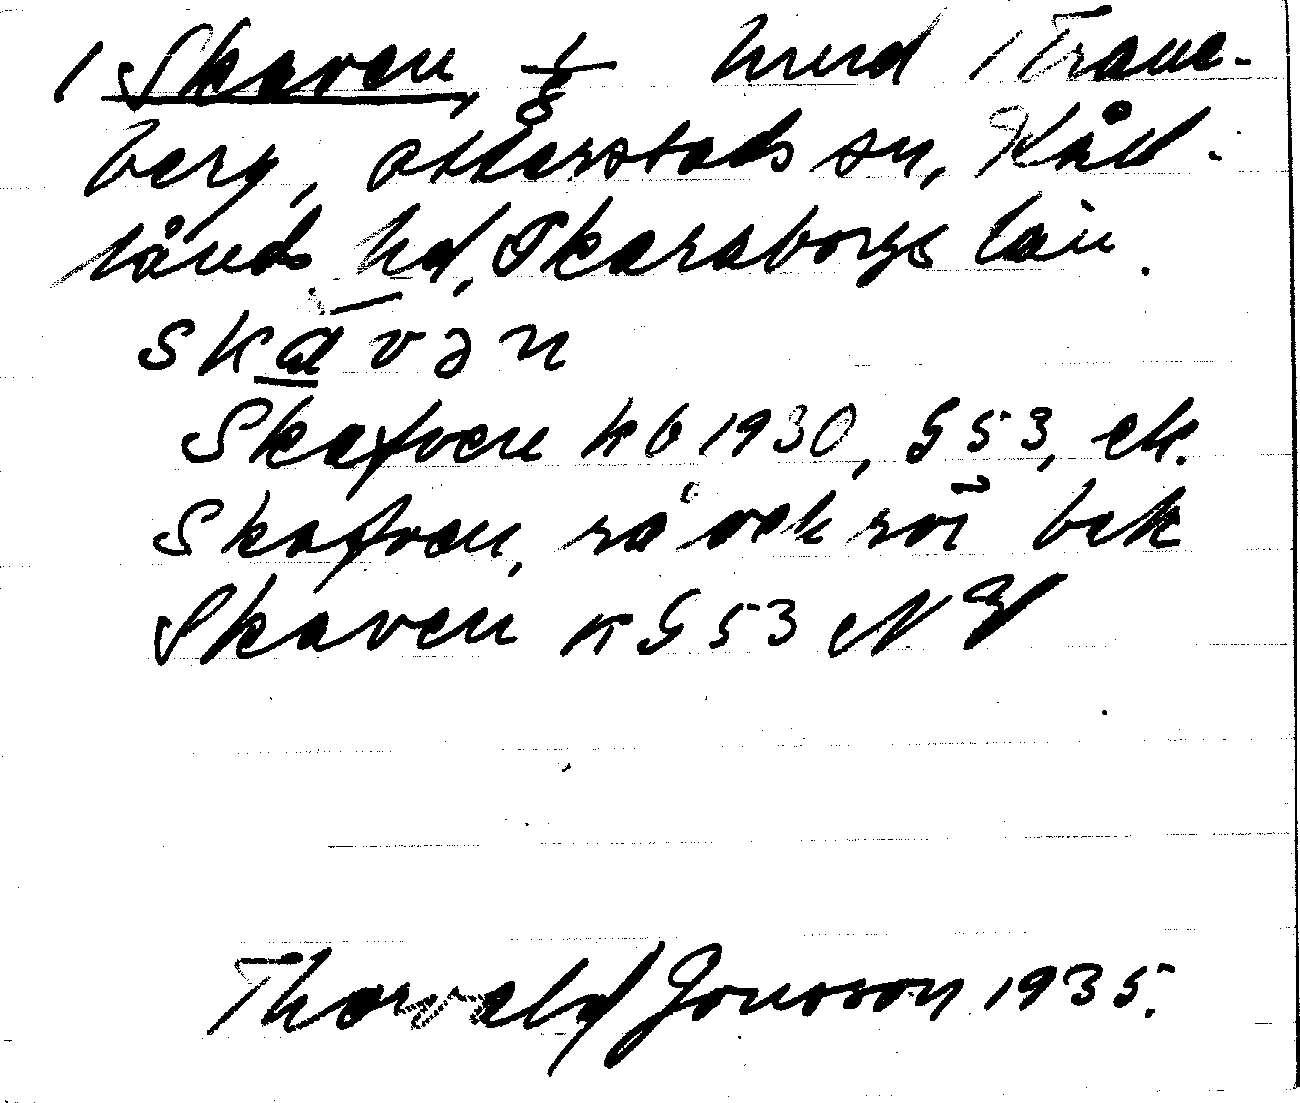 1 Skaven, 1/8 mnd i Trane-
berg, Otterstads sn, Kåll-
lands hd, Skaraborgs län.
skāvən
Skafven kb 1930, G53, ek.
Skafven, rå och rör bek
Skaven k G53 NV
Thorvald Jonsson 1935.